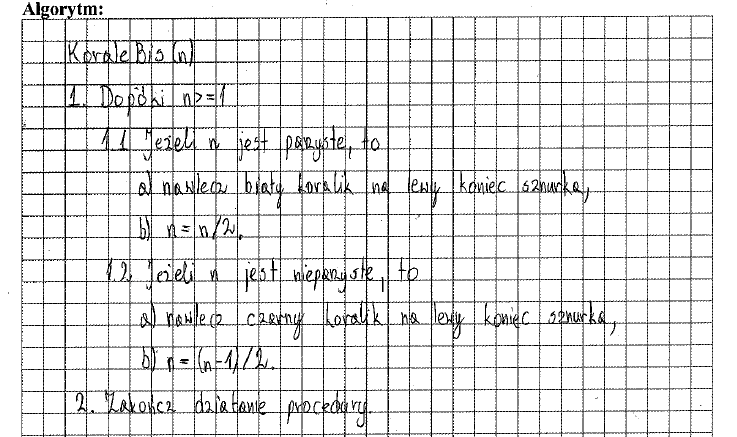 Algorytm:
KoraleBis(n)
1. Dopóki n>=1
1.1 Jeżeli n jest parzyste, to
a) nawlecz biały koralik na lewy koniec sznurka,
b) n = n/2.
1.2. Jeżeli n jest nieparzyste, to
a) nawlecz czarny koralik na lewy koniec sznurka,
b) n = (n-1)/2.
2. Zakończ działanie procedury.